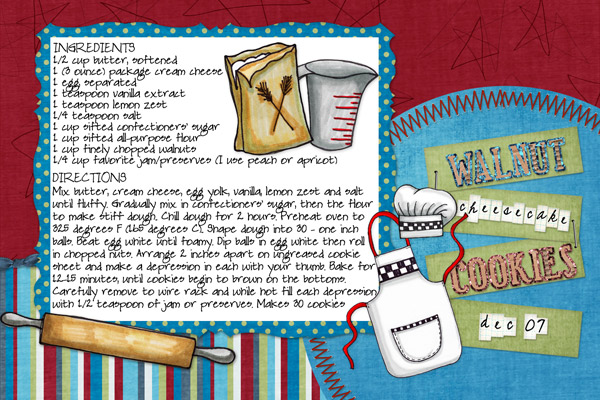 INGREDIENTS
1/2 cup butter, softened
1 (3 ounce) package cream cheese
1 egg, separated
1 teaspoon vanilla extract
1 teaspoon lemon zest
1/4 teaspoon salt
1 cup sifted confectioners' sugar
1 cup sifted all-purpose flour
1 cup finely chopped walnuts
1/4 cup favorite jam/preserves (I use peach or apricot)
DIRECTIONS
Mix butter, cream cheese, egg yolk, vanilla, lemon zest and salt
until fluffy. Gradually mix in confectioners' sugar, then the flour
to make stiff dough. Chill dough for 2 hours. Preheat oven to
325 degrees F (165 degrees C). Shape dough into 30 - one inch
balls. Beat egg white until foamy. Dip balls in egg white then roll
in chopped nuts. Arrange 2 inches apart on ungreased cookie
sheet and make a depression in each with your thumb. Bake for
12-15 minutes, until cookies begin to brown on the bottoms.
Carefully remove to wire rack and while hot fill each depression
with 1/2 teaspoon of jam or preserves. Makes 30 cookies
WALNUT
cheesecake
COOKIES
dec 07